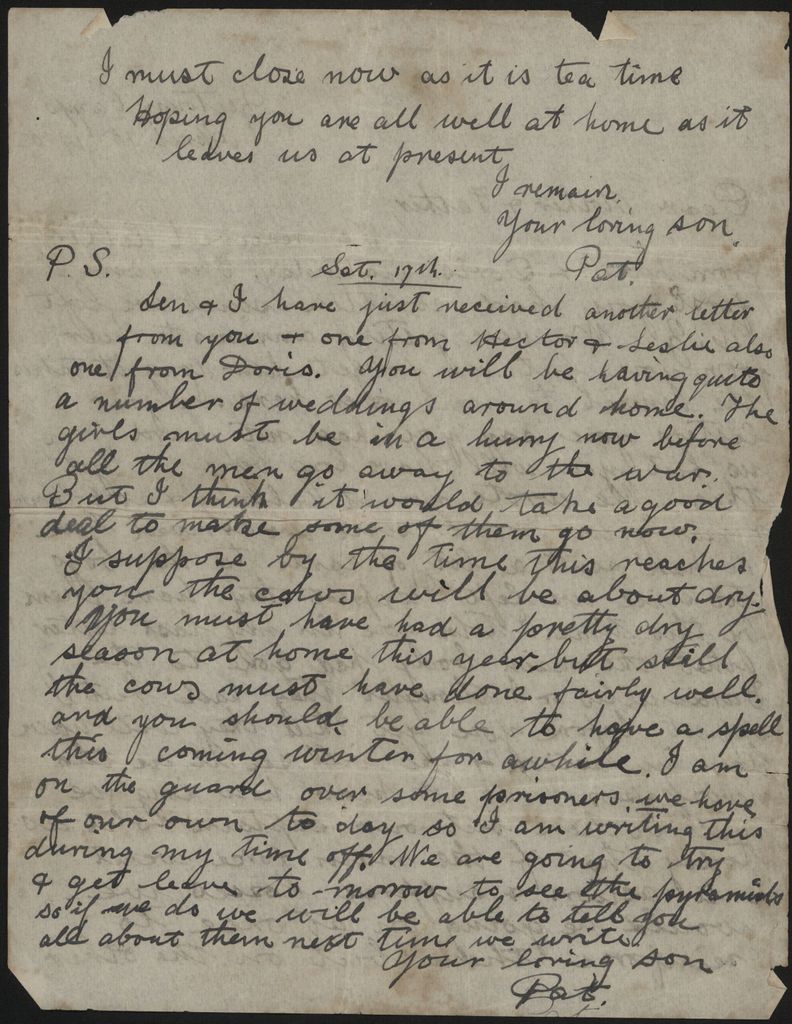 I must close now as it is tea time
Hoping you are all well at home as it
leaves us at present
I remain,
Your loving son,
P.S. Sat. 17th. Pat.
Len & I have just received another letter
from you & one from Hector & Leslie also
one from Doris. You will be having quite
a number of weddings around home. The
girls must be in a hurry now before
all the men go away to the war.
But I think it would take a good
deal to make some of them go now.
I suppose by the time this reaches
you the cows will be about dry!
You must have had a pretty dry
season at home this year, but still
the cows must have done fairly well.
and you should be able to have a spell
this coming winter for awhile. I am
on the guard over some prisoners we have
of our own to day so I am writing this
during my time off. We are going to try
& get leave to-morrow to see the pyramids
so if we do we will be able to tell you
all about them next time we write.
Your loving son
Pat.